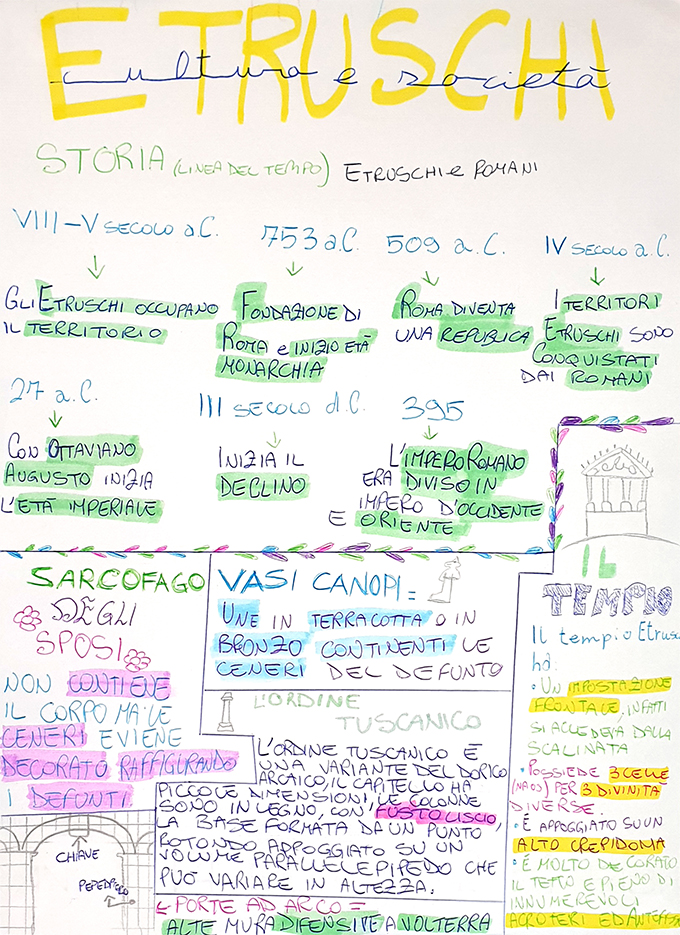 ETRUSCHI
cultura e società
STORIA (LINEA DEL TEMPO) ETRUSCHI e ROMANI
VIII-V SECOLO a.C.
GLI ETRUSCHI OCCUPANO
IL TERRITORIO
753 a.C.
FONDAZIONE DI
ROMA e INIZIO ETÀ
MONARCHIA
509 a.C.
ROMA DIVENTA
UNA REPUBLICA
IV SECOLO a.C.
I TERRITORI
ETRUSCHI SONO
CONQUISTATI
DAI ROMANI
27 a.C.
CON OTTAVIANO
AUGUSTO INIZIA
L'ETÀ IMPERIALE
III SECOLO d.C.
INIZIA IL
DECLINO
395
L'IMPERO ROMANO
ERA DIVISO IN
IMPERO D'OCCIDENTE
E ORIENTE
SARCOFAGO
DEGLI
SPOSI
NON CONTIENE
IL CORPO MA LE
CENERI E VIENE
DECORATO RAFFIGURANDO
I DEFUNTI
CHIAVE
VASI CANOPI =
UNE IN TERRACOTTA O IN
BRONZO CONTINENTI LE
CENERI DEL DEFUNTO
L'ORDINE
TUSCANICO
L'ORDINE TUSCANICO È
UNA VARIANTE DEL DORICO
ARCAICO, IL CAPITELLO HA
PICCOLE DIMENSIONI, LE COLONNE
SONO IN LEGNO, CON FUSTO LISCIO,
LA BASE FORMATA DA UN PUNTO
ROTONDO APPOGGIATO SU UN
VOLUME PARALLELEPIPEDO CHE
PUÒ VARIARE IN ALTEZZA.
PORTE AD ARCO =
ALTE MURA DIFENSIVE A VOLTERRA
IL
TEMPIO
Il tempio Etrus
ha:
• UN IMPOSTAZIONE
FRONTALE, INFATTI
SI ACCEDEVA DALLA
SCALINATA
• POSSIEDE 3 CELLE
(NAOS) PER 3 DIVINITÀ
DIVERSE.
• È APPOGGIATO SU UN
ALTO CREPIDOMA
• È MOLTO DECORATO
IL TETTO E PIENO DI
INNUMEREVOLI
ACROTERI ED ANTEFISSE